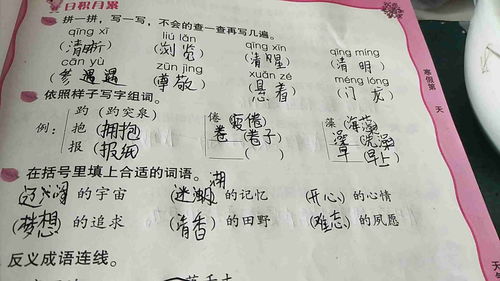 日积月累
拼一拼，写一写，不会的查一查再写几遍。
qīng xī liú lǎn qīng xīn qíng míng
(清晰) (浏览) (清醒) (清明)
cān yù zūn jìng xuǎn zé méng lóng
(遇遇) (尊敬) (悬着) (门龙)
依照样子写字组词。
趵(趵突泉) 倦(疲倦) 藻(海藻)
例：抱(拥抱) 卷(卷子) 澡(洗澡)
报(报纸) ( ) 早(早上)
在括号里填上合适的词语。
的宇宙 (迷湖)的记忆 (开心)的心情
(梦想)的追求 (清香)的田野 (难志)的夙愿
反义成语连线。
寒假第 天